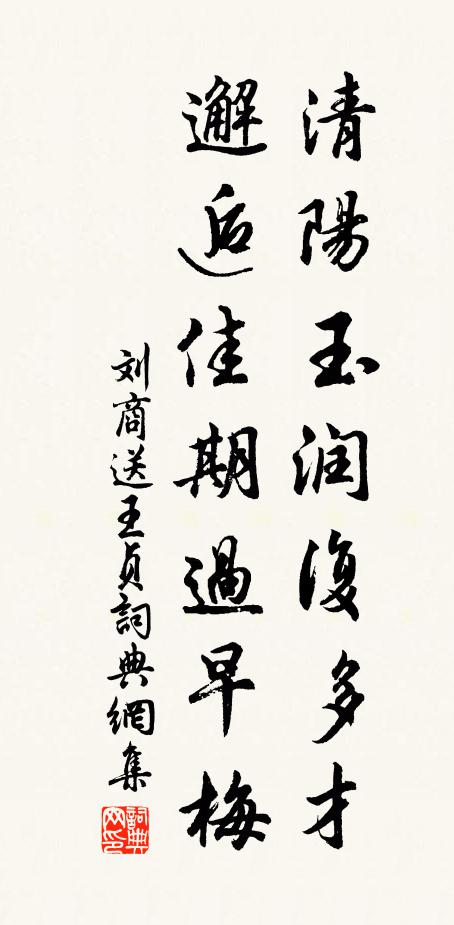 清陽玉润復多才
邂逅佳期過早梅
刘商送王貞詞典網集
詞典网印